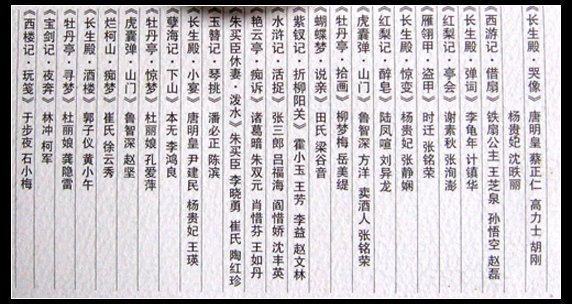 《长生殿 哭像》 唐明皇 蔡正仁 高力士 胡刚
杨贵妃 沈昳丽
《西游记 借扇》 铁扇公主 王芝泉 孙悟空 赵磊
《长生殿·弹词》 李龟年 计镇华
《红梨记·亭会》 谢素秋 张洵澎
《雁翎甲·盗甲》 时迁 张铭荣
《长生殿·惊变》 杨贵妃 张静娴
《红梨记·醉皂》 陆凤喧 刘异龙
《虎囊弹·山门》 鲁智深 方洋 卖酒人 张铭荣
《牡丹亭·拾画》 柳梦梅 岳美缇
《蝴蝶梦·说亲》 田氏 梁谷音
《紫钗记·折柳阳关》 霍小玉 王芳 李益 赵文林
《水浒记·活捉》 张三郎 吕福海 阎惜娇 沈丰英
《艳云亭·痴诉》 诸葛暗 朱双元 肖惜芬 王如丹
《朱买臣休妻·泼水》 朱买臣 李晓勇 崔氏 陶红珍
《玉簪记·琴挑》 潘必正 陈滨
《长生殿·小宴》 唐明皇 尹建民 杨贵妃 王瑛
《孽海记·下山》 本无 李鸿良
《牡丹亭·惊梦》 杜丽娘 孔爱萍
《虎囊弹·山门》 鲁智深 赵坚
《烂柯山·痴梦》 崔氏 徐云秀
《长生殿·酒楼》 郭子仪 黄小午
《牡丹亭·寻梦》 杜丽娘 龚隐雷
《宝剑记·夜奔》 林冲 柯军
《西楼记·玩笺》 于步夜 石小梅